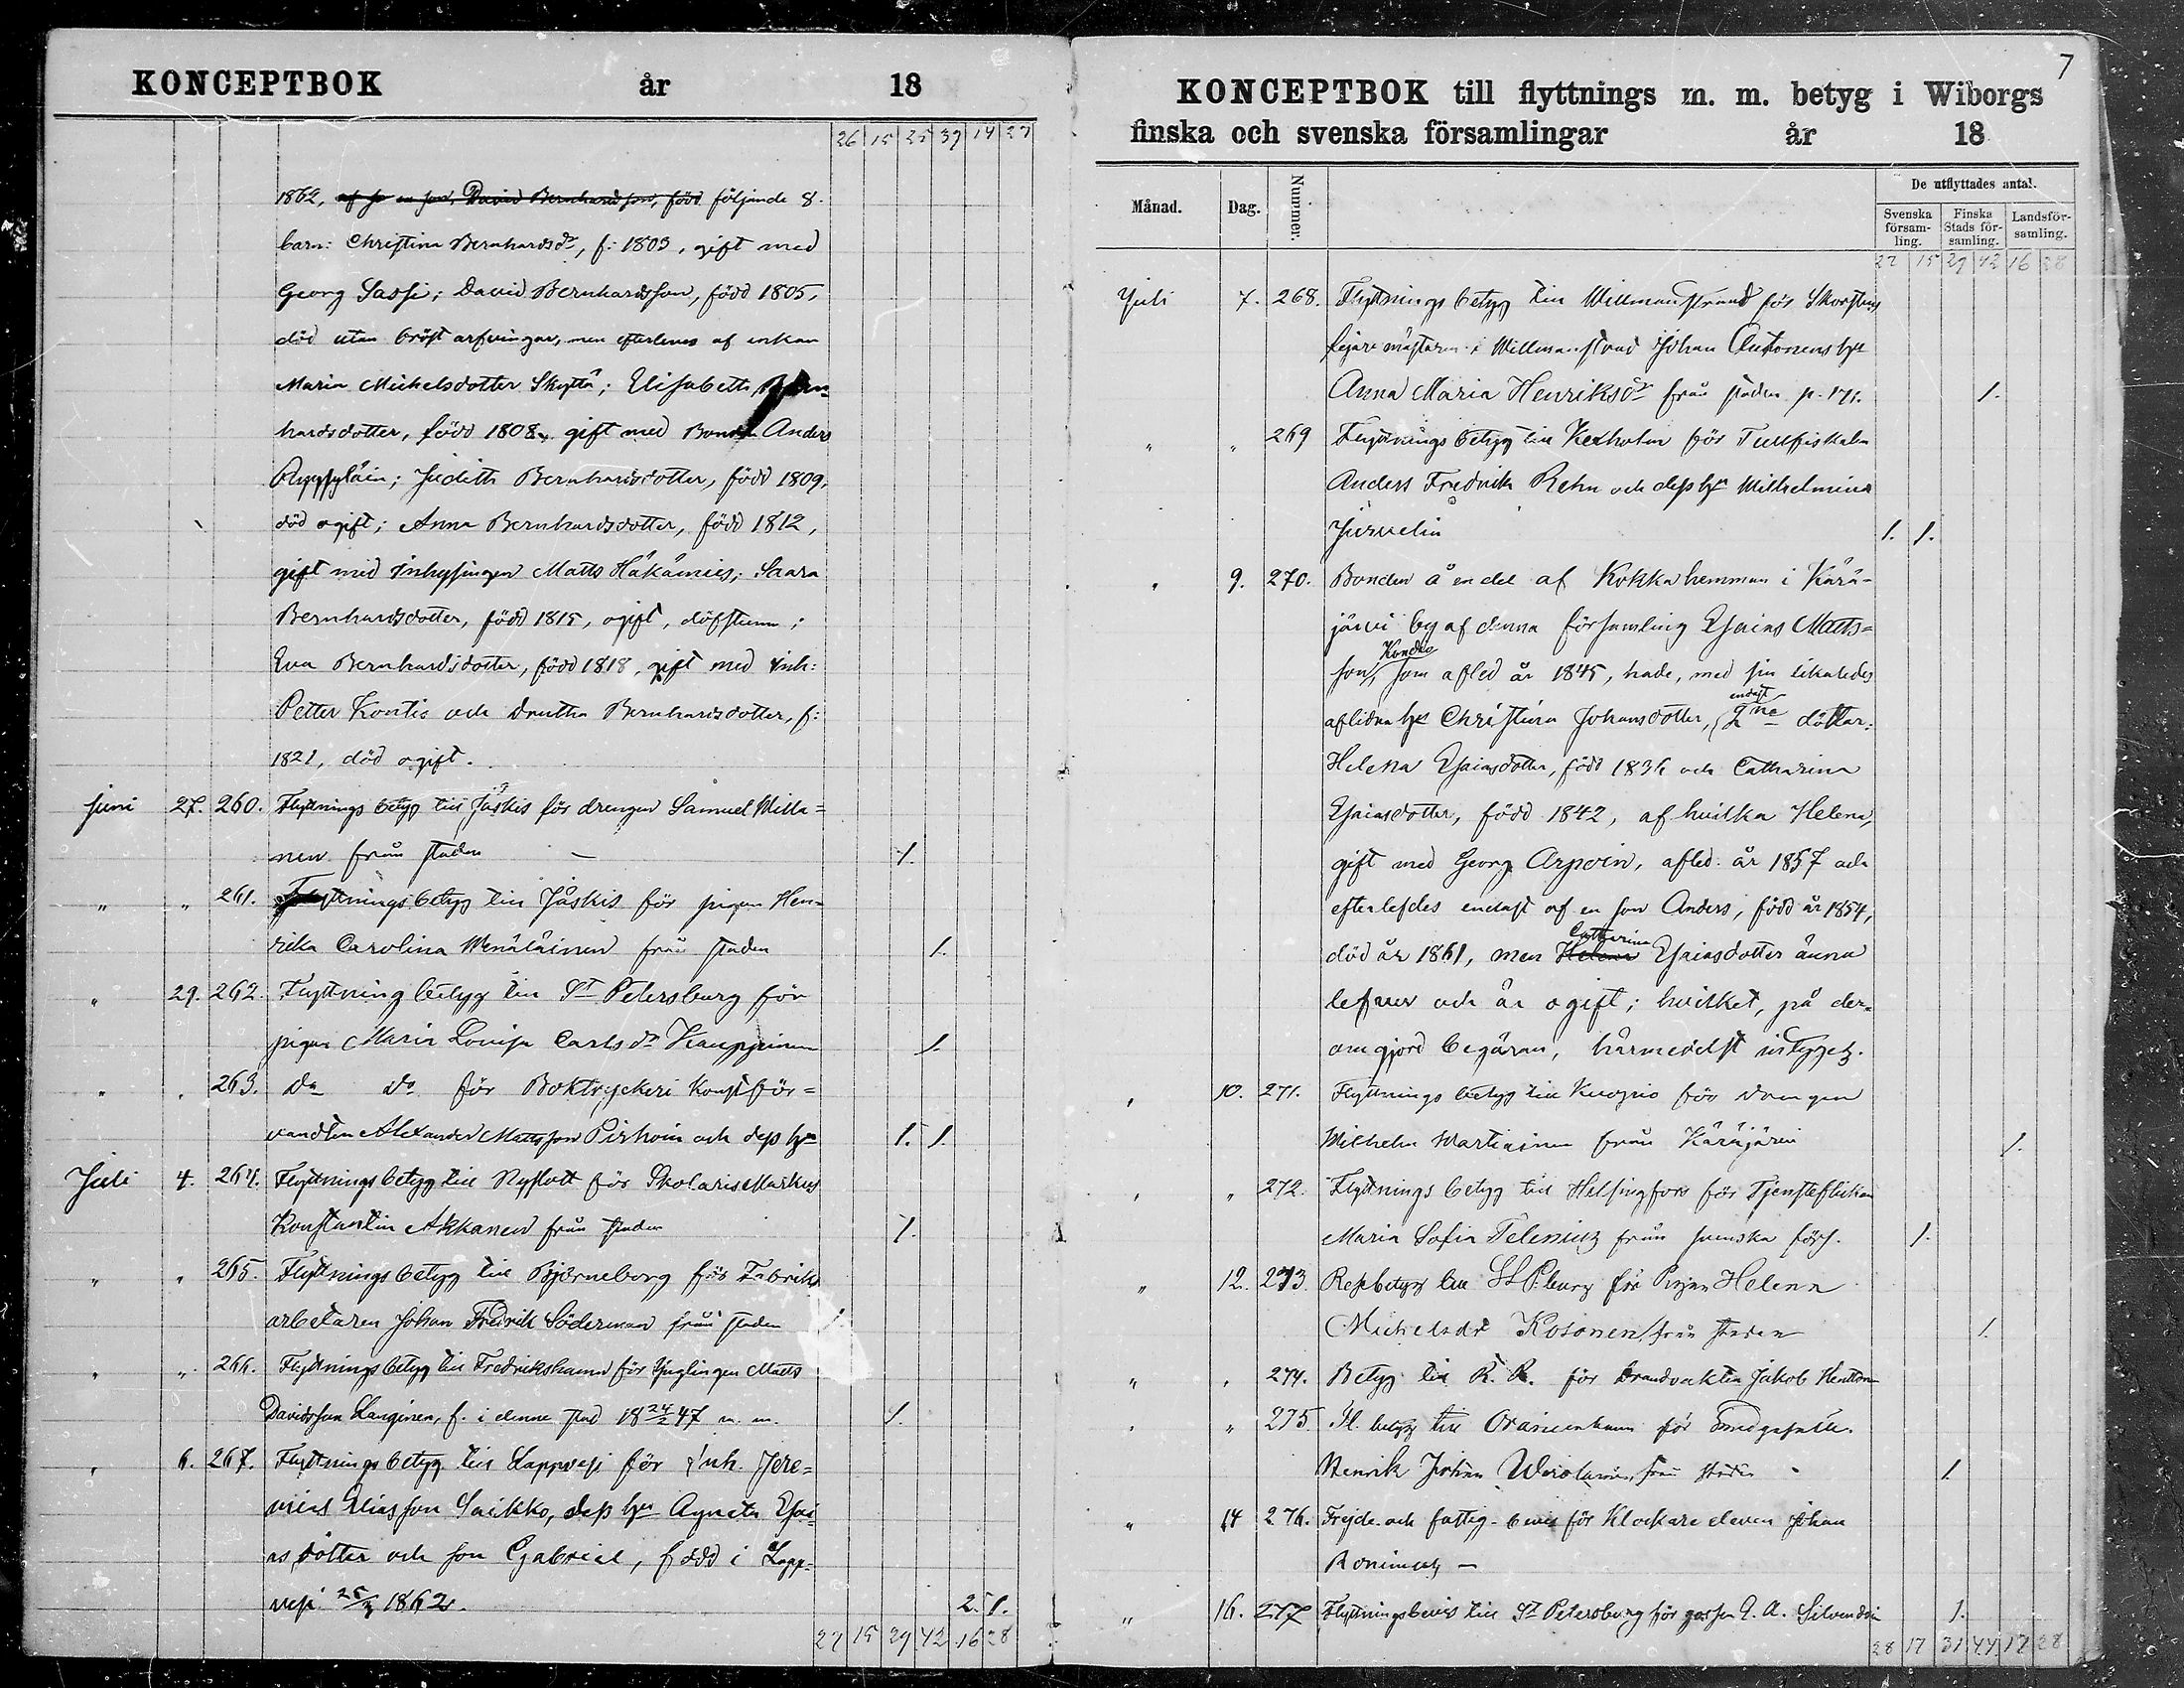 KONCEPTBOK år 18
26 15 25 39 14 27
1862, af ho en son, David Bernhardsson, född följande 8.
barn: Christina Bernhardsdr, f: 1803, gift med
Georg Sassi; David Bernhardsson, född 1805,
död utan bröst arfvingar, men efterlems af enkan
Maria Michelsdotter Skyttä; Elisabeth Bern=
hardsdotter, född 1808, gift med Bonden Anders
Judith Bernhardsdotter, född 1809,
död ogift; Anna Bernhardsdotter, född 1812,
gift med Inhysingen Matts Häkämies; Saara
Bernhardsdotter, född 1815, ogift, döfstum;
Eva Bernhardsdotter, född 1818, gift med Inh:
Petter Kontis och Drutha Bernhardsdotter, f:
1821, död ogift.
Juni 27. 260. Flyttnings betyg till Jäskis för drengen Samuel Milla=
nen från staden 1.
" " 261. Flyttnings betyg till Jäskis för pigan Hen=
rika Carolina Menäläinen från staden 1.
" 29. 262. Flyttning betyg till St Petersburg för
pigan Maria Lovisa Carlsdr Kauppinen 1.
" " 263. Do do för Boktryckeri Konstför=
vandten Alexander Mattsson Pirhoin och dess hu 1. 1.
Juli 4. 264. Flyttnings betyg till Nyslott för Skolaris Markus
Konstantin Akkanen från staden 1.
" " 265. Flyttnings betyg till Björneborg för Fabriks
arbetaren Johan Fredrik Söderman från staden 1.
" " 266. Flyttnings betyg till Fredrikshamn för Ynglingen Matts
Davidsson Langinen, f. i denne stad 18 24/2 47 m. m. 1.
" 6. 267. Flyttnings betyg till Lappvesi för Inh. Jere=
mias Eliasson Saikko, dess hu Agneta Esai=
as dotter och son Gabriel, född i Lapp=
vesi 25/3 1862. 2. 1.
27 15 29 42 16 28
7
KONCEPTBOK till flyttnings m. m. betyg i Wiborgs
finska och svenska församlingar år 18
Månad. Dag. Nummer. De utflyttades antal.
Svenska församling. Finska Stads församling. Landsförsamling.
27 15 29 42 16 28
Juli 7. 268. Flyttnings betyg till Willmanstrand för Skorstens
fejare mästaren i Willmanstrand Johan Antonens hu
Anna Maria Henriksdr från staden p. 171. 1.
" " 269 Flyttnings betyg till Kexholm för Tullfiskalen
Anders Fredrik Rehn och dess hu Wilhelmina
Jürvelin 1. 1.
" 9. 270. Bonden å en del af Kokka hemman i Kärä=
järvi by af denna församling Esaias Matts=
son Kondo, som afled år 1845, hade, med sin likaledes
aflidna hu Christina Johansdotter, endast 2ne döttar:
Helena Esaiasdotter, född 1836 och Catharina
Esaiasdotter, född 1842, af hvilka Helena,
gift med Georg Arpoin, afled år 1857 och
efterlefdes endast af en son Anders, född år 1854,
död år 1861, men Helena Catharina Esaiasdotter änna
lefver och är ogift; hvilket, på der=
om gjord begäran, härmedelst intygas.
" 10. 271. Flyttnings betyg till Kuopio för drengen
Wilhelm Martikainen från Käräjärvi 1.
" " 272. Flyttnings betyg till Helsingfors för Tjensteflickan
Maria Sofia Teleniuz från svenska förs. 1.
" 12. 273. Resebetyg till St P.burg för Pigan Helena
Michelsdr Kosonen från staden 1.
" " 274. Betyg till R. R. för Brandvakten Jakob
" " 275. Fl. betyg till Oranienbaum för Smedgesälle
Henrik Johan Wirolainen, från staden 1.
" 14 276. Frejde- och fattig- bevis för Klockare eleven Johan
" 16. 277 Flyttningsbevis till St Petersburg för gossen G. A. Silvendoin 1.
28 17 31 44 17 28